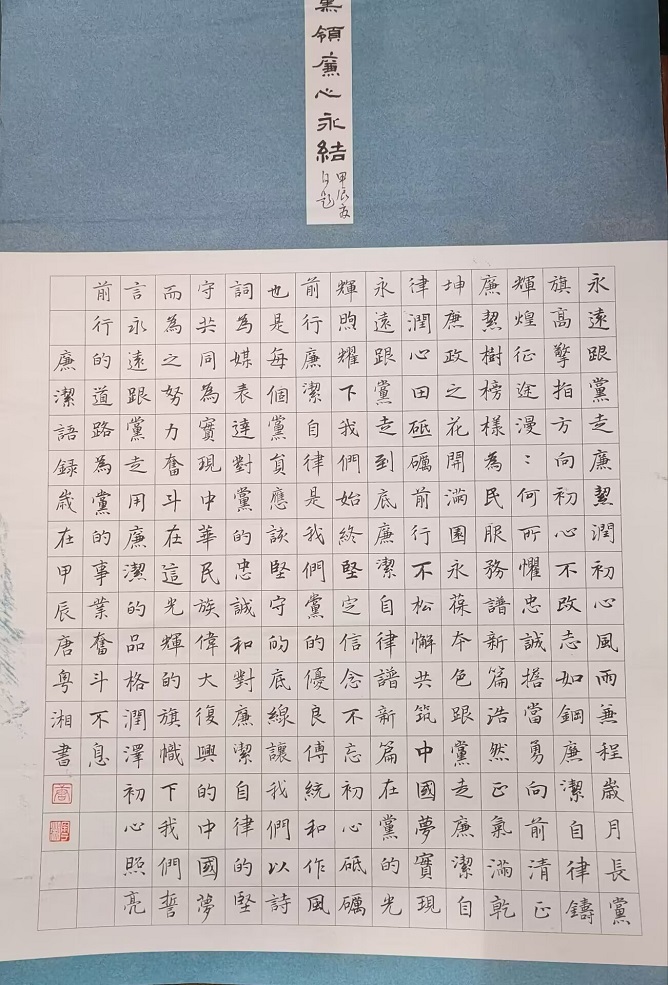 領廉心永結
甲辰夏
自題
永遠跟黨走廉潔潤初心風雨兼程歲月長黨
旗高擎指方向初心不改志如鋼廉潔自律鑄
輝煌征途漫:何所懼忠誠擔當勇向前清正
廉潔樹榜樣為民服務譜新篇浩然正氣滿乾
坤廉政之花開滿園永葆本色跟黨走廉潔自
律潤心田砥礪前行不松懈共筑中國夢實現
永遠跟黨走到底廉潔自律譜新篇在黨的光
輝照耀下我們始終堅定信念不忘初心砥礪
前行廉潔自律是我們黨的優良傳統和作風
也是每個黨員應該堅守的底線讓我們以詩
詞為媒表達對黨的忠誠和對廉潔自律的堅
守共同為實現中華民族偉大復興的中國夢
而為之努力奮斗在這光輝的旗幟下我們誓
言永遠跟黨走用廉潔的品格潤澤初心照亮
前行的道路為黨的事業奮斗不息
廉潔語録歲在甲辰唐粤湘書